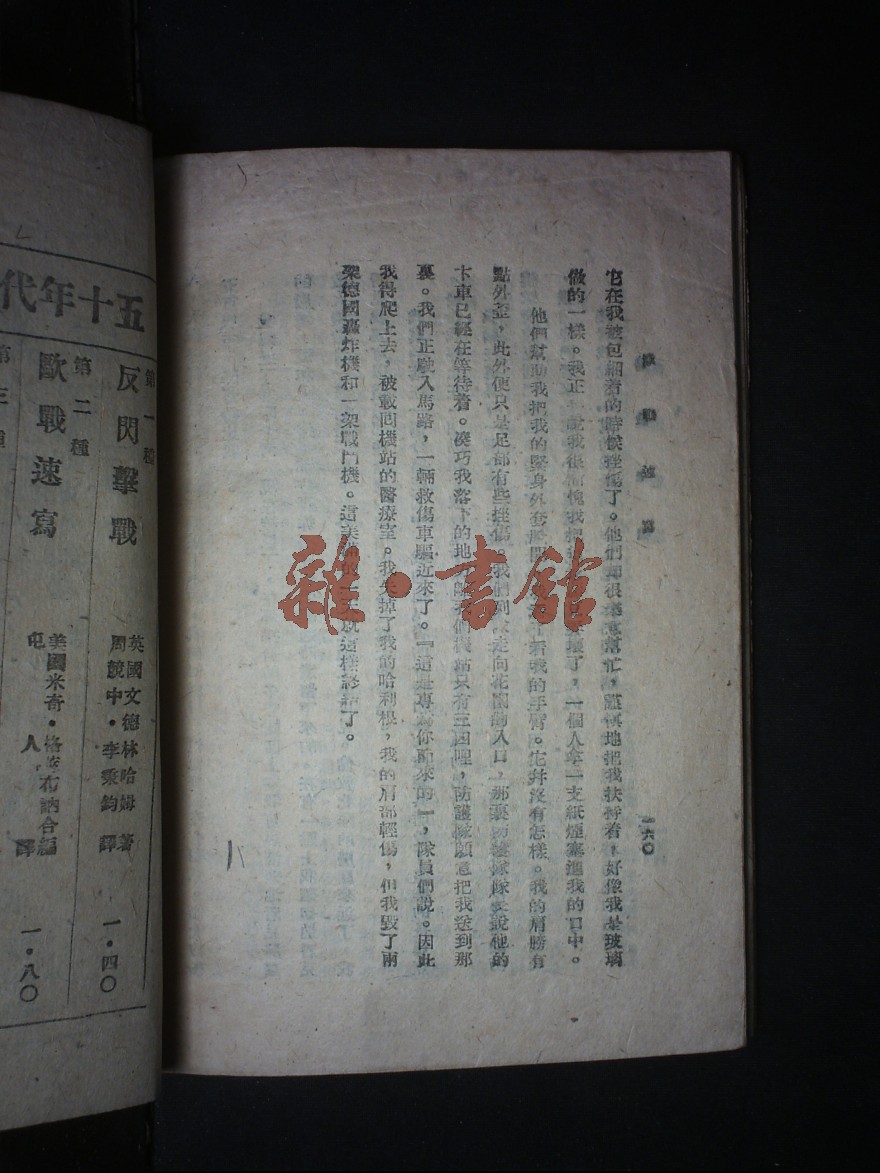 歐戰速寫
一六〇
它在我被包綑着的時候挫傷了。他們都很樂意幫忙，謹慎地把我扶持着，好像我是玻璃
做的一樣。我正說我很慚愧我把壞了，一個人拿一支紙煙塞進我的口中。
他們幫助我把我的緊身外套若我的手臂。它并沒有怎樣。我的肩膀有
點外歪，此外便只是足部有些挫傷。我們列走向花園的入口，那裏防護隊隊長說他的
卡車已經在等待着。湊巧我落下的地們機站只有三四哩，防護隊願意把我送到那
裏。我們正駛入馬路，一輛救傷車駛近來了。『這是專為你而來的』，隊員們說。因此
我得爬上去，被載回機站的醫療室。我失掉了我的哈利根，我的肩部輕傷，但我毀了兩
架德國轟炸機和一架戰鬥機。這美滿的一天就這樣終結了。
五十年代
第一種
反閃擊戰
英國文德林哈姆著
周競中・李秉鈞譯
一・四〇
第二種
歐戰速寫
美國米奇・格萊布訥合編
屯人譯
一・八〇
第三種
雜・書館